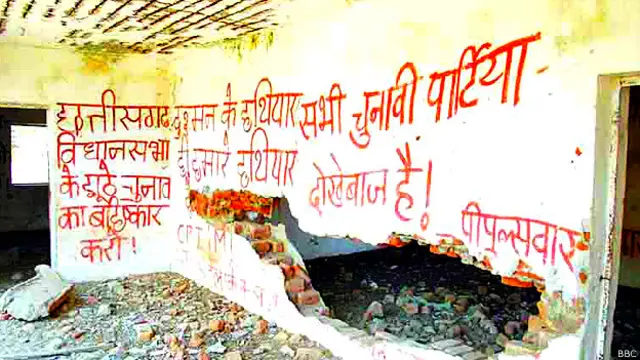 छत्तीसगढ़
विधानसभा
के झूठे चुनाव
का बहिष्कार
करो!
दुश्मन के हथियार
ही हमारे हथियार
सभी चुनावी पार्टिया
धोखेबाज है!
पीपुल्सवार
CPI M
BBC